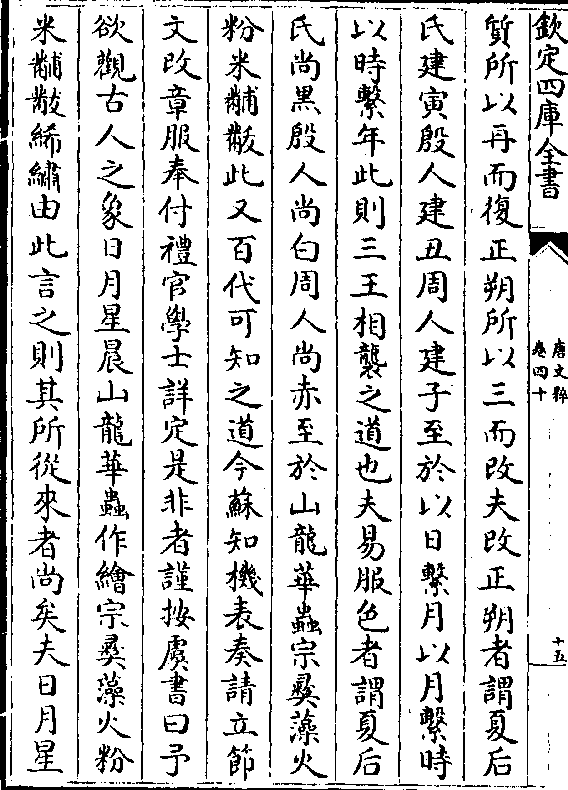 欽定四庫全書
唐文粹
卷四十
十五
質所以再而復正朔所以三而改夫改正朔者謂夏后
氏建寅殷人建丑周人建子至於以日繫月以月繫時
以時繫年此則三王相襲之道也夫易服色者謂夏后
氏尚黑殷人尚白周人尚赤至於山龍華蟲宗彝藻火
粉米黼黻此又百代可知之道今蘇知機表奏請立節
文改章服奉付禮官學士詳定是非者謹按虞書曰予
欲觀古人之象日月星辰山龍華蟲作繪宗彝藻火粉
米黼黻絺繡由此言之則其所從來者尚矣夫日月星